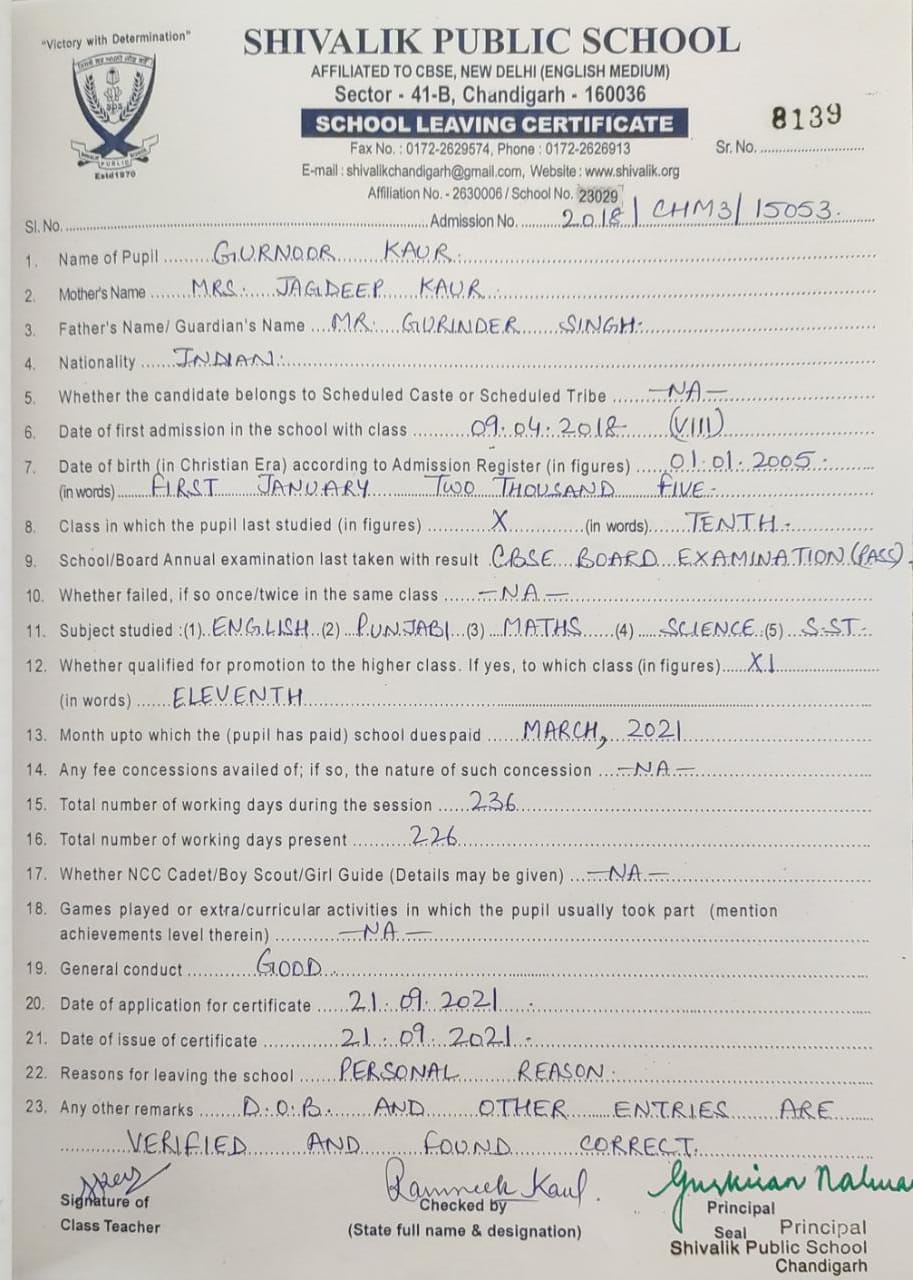 "Victory with Determination"
SHIVALIK PUBLIC SCHOOL
AFFILIATED TO CBSE, NEW DELHI (ENGLISH MEDIUM)
Sector - 41-B, Chandigarh - 160036
SCHOOL LEAVING CERTIFICATE
8139
Fax No. : 0172-2629574, Phone : 0172-2626913
Sr. No. ....................
E-mail : shivalikchandigarh@gmail.com, Website : www.shivalik.org
PUBLIC
Estd1970
Affiliation No. - 2630006 / School No. 23029
Sl. No. .................... Admission No. ........ 2018/CHM3/15053.
1. Name of Pupil ........ GURNOOR KAUR.
2. Mother's Name ........ MRS. JAGDEEP KAUR.
3. Father's Name/ Guardian's Name .... MR. GURINDER SINGH.
4. Nationality ...... INDIAN.
5. Whether the candidate belongs to Scheduled Caste or Scheduled Tribe ...... —NA—
6. Date of first admission in the school with class ........ 09.04.2018 (VIII)
7. Date of birth (in Christian Era) according to Admission Register (in figures) ..... 01.01.2005.
(in words) ..... FIRST JANUARY TWO THOUSAND FIVE.
8. Class in which the pupil last studied (in figures) ........ X ........ (in words)...... TENTH.
9. School/Board Annual examination last taken with result CBSE BOARD EXAMINATION (PASS).
10. Whether failed, if so once/twice in the same class ..... —NA—
11. Subject studied :(1). ENGLISH (2) PUNJABI (3) MATHS (4) SCIENCE (5) S.ST.
12. Whether qualified for promotion to the higher class. If yes, to which class (in figures)..... XI
(in words) ...... ELEVENTH
13. Month upto which the (pupil has paid) school duespaid ...... MARCH, 2021
14. Any fee concessions availed of; if so, the nature of such concession .... —NA—
15. Total number of working days during the session ...... 236
16. Total number of working days present .......... 226
17. Whether NCC Cadet/Boy Scout/Girl Guide (Details may be given) .... —NA—
18. Games played or extra/curricular activities in which the pupil usually took part (mention
achievements level therein) .......... —NA—
19. General conduct ............ GOOD
20. Date of application for certificate ..... 21.09.2021.
21. Date of issue of certificate ............. 21.09.2021.
22. Reasons for leaving the school ...... PERSONAL REASON.
23. Any other remarks ....... D.O.B. AND OTHER ENTRIES ARE
VERIFIED AND FOUND CORRECT.
Ramneek Kaul.
Signature of
Class Teacher
Checked by
(State full name & designation)
Principal
Seal Principal
Shivalik Public School
Chandigarh